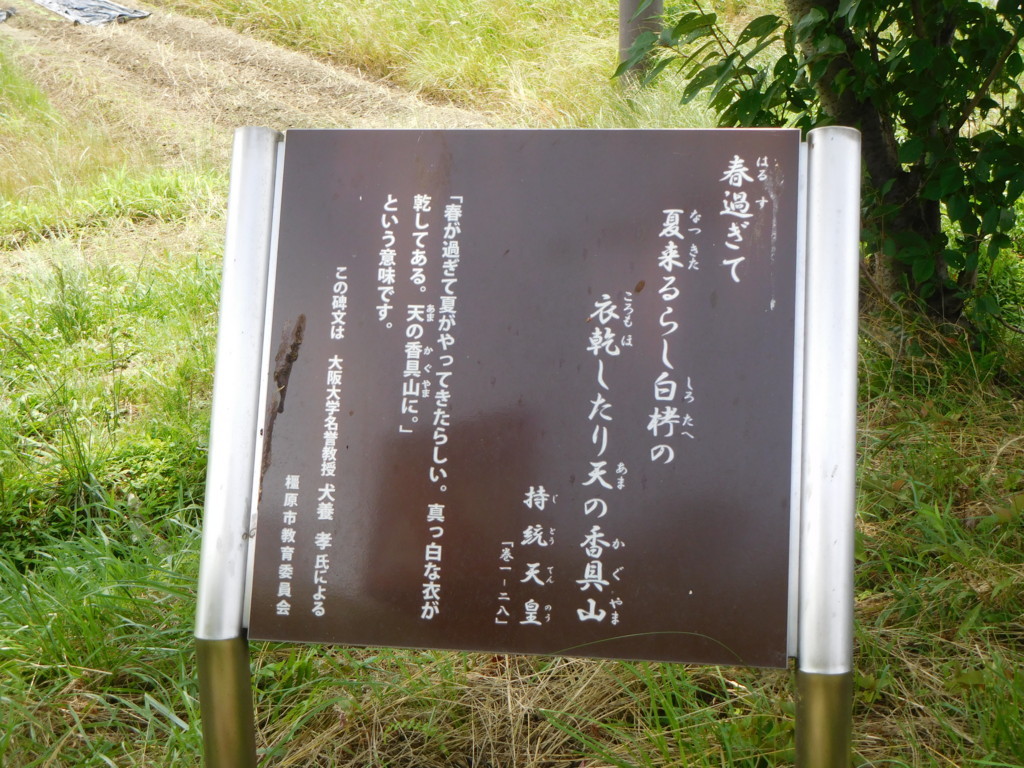 春過ぎて
夏来るらし白栲の
衣乾したり天の香具山
持統天皇
「巻一－二八」
「春が過ぎて夏がやってきたらしい。真っ白な衣が
乾してある。天の香具山に。」
という意味です。
この碑文は 大阪大学名誉教授 犬養 孝氏による
橿原市教育委員会